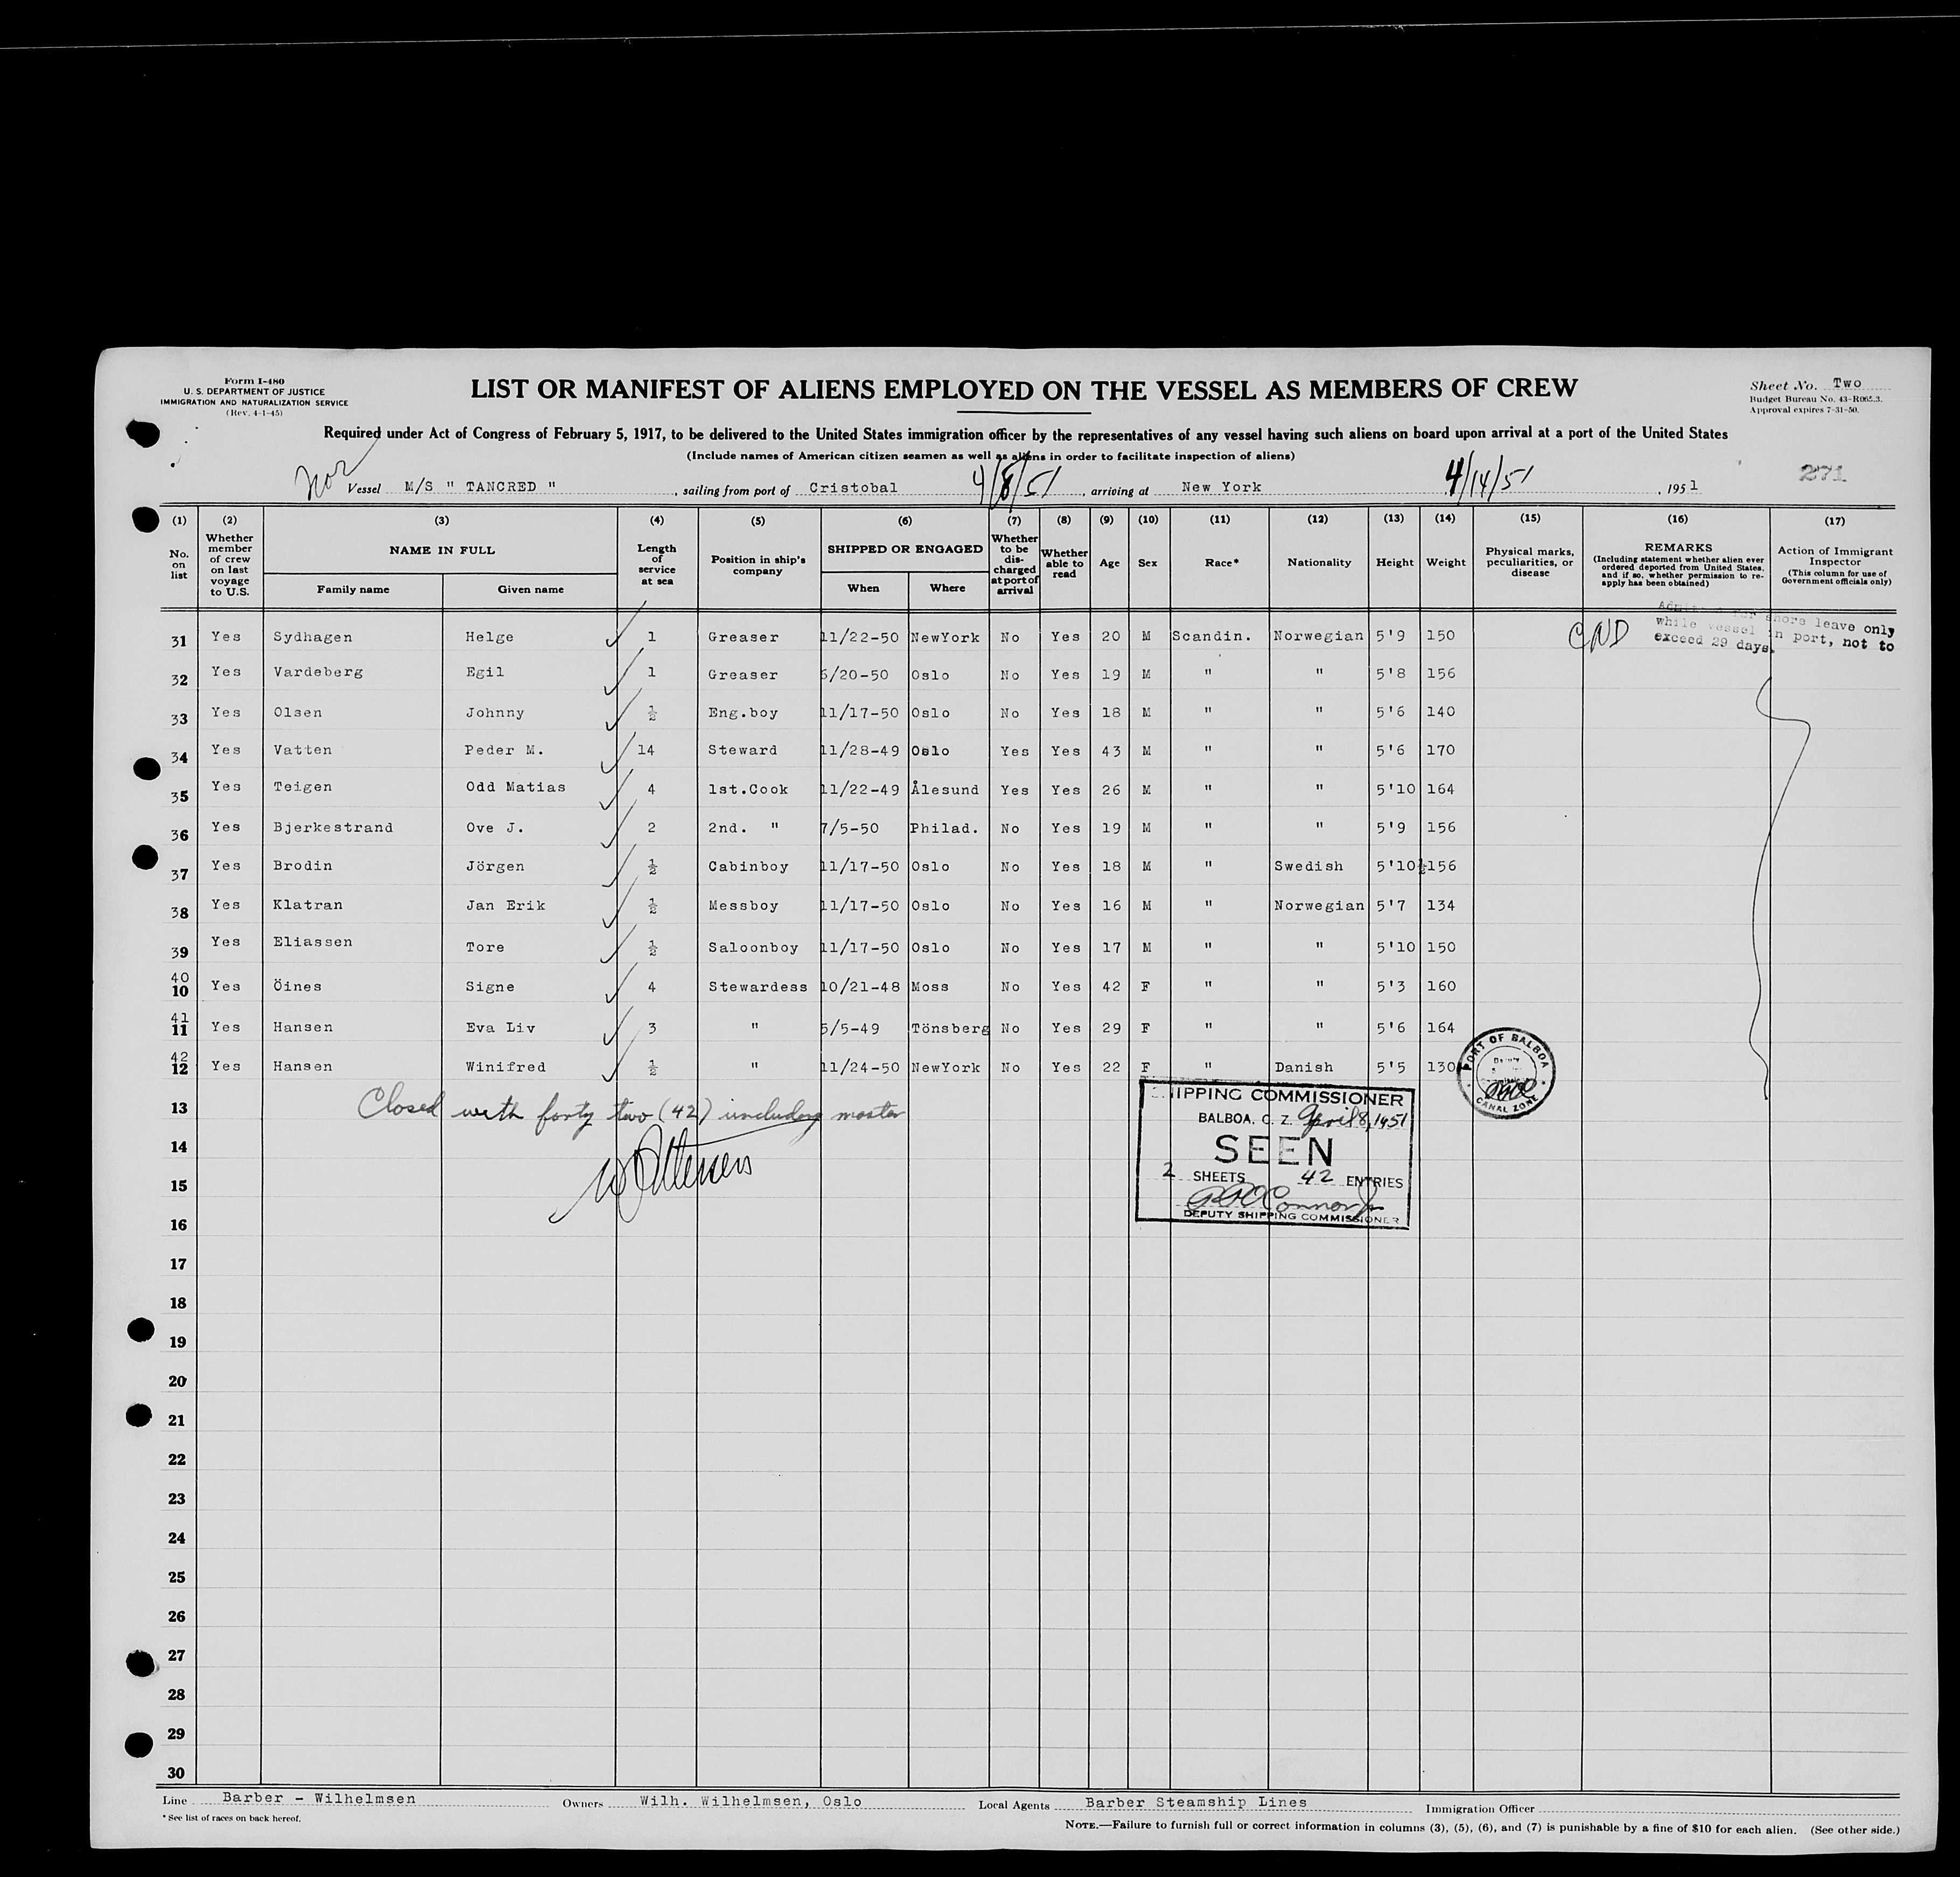 Form I-480
U. S. DEPARTMENT OF JUSTICE
IMMIGRATION AND NATURALIZATION SERVICE
(Rev. 4-1-45)
LIST OR MANIFEST OF ALIENS EMPLOYED ON THE VESSEL AS MEMBERS OF CREW
Sheet No. Two
Budget Bureau No. 43-R065.3.
Approval expires 7-31-50.
Required under Act of Congress of February 5, 1917, to be delivered to the United States immigration officer by the representatives of any vessel having such aliens on board upon arrival at a port of the United States
(Include names of American citizen seamen as well as aliens in order to facilitate inspection of aliens)
Nor Vessel M/S " TANCRED ", sailing from port of Cristobal 4/8/51, arriving at New York 4/14/51, 1951 271
(1) (2) (3) (4) (5) (6) (7) (8) (9) (10) (11) (12) (13) (14) (15) (16) (17)
No. on list
Whether member of crew on last voyage to U.S.
NAME IN FULL
Family name Given name
Length of service at sea
Position in ship's company
SHIPPED OR ENGAGED
When Where
Whether to be discharged at port of arrival
Whether able to read
Age
Sex
Race*
Nationality
Height
Weight
Physical marks, peculiarities, or disease
REMARKS
(Including statement whether alien ever ordered deported from United States, and if so, whether permission to re-apply has been obtained)
Action of Immigrant Inspector
(This column for use of Government officials only)
31 Yes Sydhagen Helge 1 Greaser 11/22-50 NewYork No Yes 20 M Scandin. Norwegian 5'9 150
shore leave only
while vessel in port, not to
exceed 29 days.
32 Yes Vardeberg Egil 1 Greaser 6/20-50 Oslo No Yes 19 M " " 5'8 156
33 Yes Olsen Johnny ½ Eng.boy 11/17-50 Oslo No Yes 18 M " " 5'6 140
34 Yes Vatten Peder M. 14 Steward 11/28-49 Oslo Yes Yes 43 M " " 5'6 170
35 Yes Teigen Odd Matias 4 1st.Cook 11/22-49 Ålesund Yes Yes 26 M " " 5'10 164
36 Yes Bjerkestrand Ove J. 2 2nd. " 7/5-50 Philad. No Yes 19 M " " 5'9 156
37 Yes Brodin Jörgen ½ Cabinboy 11/17-50 Oslo No Yes 18 M " Swedish 5'10½ 156
38 Yes Klatran Jan Erik ½ Messboy 11/17-50 Oslo No Yes 16 M " Norwegian 5'7 134
39 Yes Eliassen Tore ½ Saloonboy 11/17-50 Oslo No Yes 17 M " " 5'10 150
40 10 Yes Öines Signe 4 Stewardess 10/21-48 Moss No Yes 42 F " " 5'3 160
41 11 Yes Hansen Eva Liv 3 " 5/5-49 Tönsberg No Yes 29 F " " 5'6 164
42 12 Yes Hansen Winifred ½ " 11/24-50 NewYork No Yes 22 F " Danish 5'5 130
PORT OF BALBOA
CANAL ZONE
13 Closed with forty two (42) including master
SHIPPING COMMISSIONER
BALBOA, C. Z. April 8, 1951
SEEN
2 SHEETS 42 ENTRIES
DEPUTY SHIPPING COMMISSIONER
14
15
16
17
18
19
20
21
22
23
24
25
26
27
28
29
30
Line Barber - Wilhelmsen Owners Wilh. Wilhelmsen, Oslo Local Agents Barber Steamship Lines Immigration Officer
* See list of races on back hereof.
NOTE.—Failure to furnish full or correct information in columns (3), (5), (6), and (7) is punishable by a fine of $10 for each alien. (See other side.)